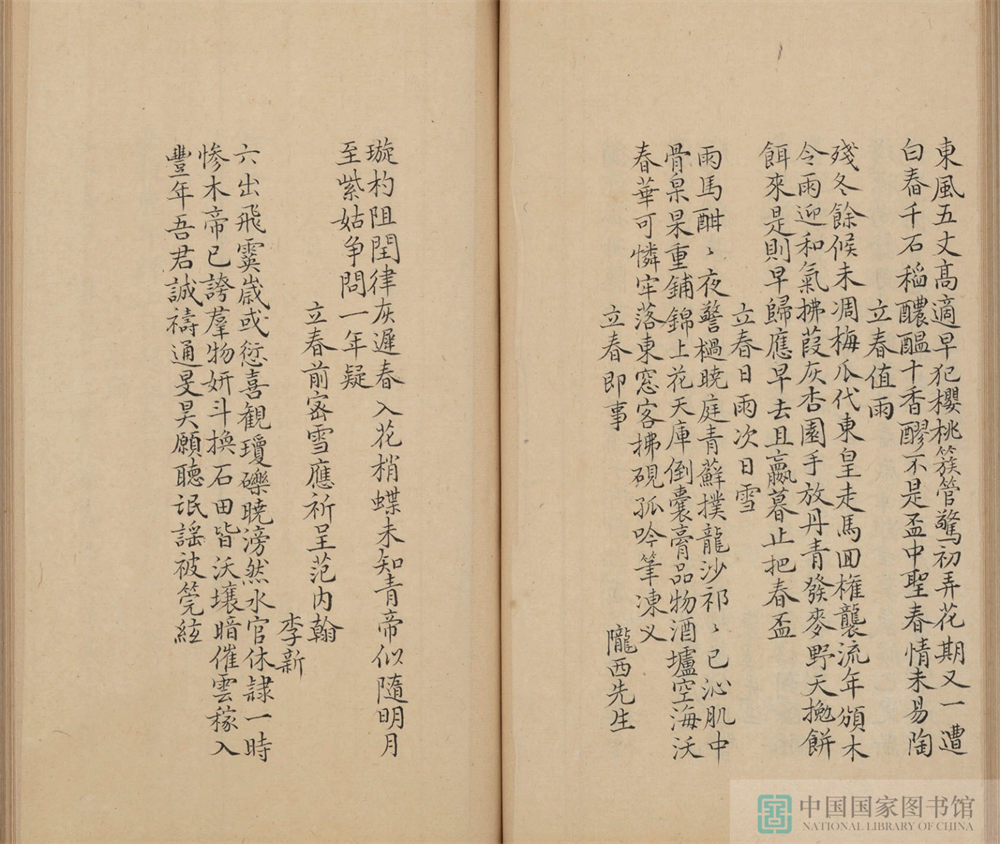 東風五丈高適早犯櫻桃簇管驚初弄花期又一遭
白春千石稻醲醖十香醪不是盃中聖春情未易陶
立春值雨
殘冬餘候未凋梅瓜代東皇走馬回權襲流年頒木
令雨迎和氣拂葭灰杏園手放丹青發麥野天攙餅
餌來是則早歸應早去且嬴暮止把春盃
立春日雨次日雪
雨馬酣〻夜警檛曉庭青蘚撲龍沙祁〻已沁肌中
骨杲杲重鋪錦上花天庫倒囊膏品物酒壚空海沃
春華可憐牢落東窓客拂硯孤吟筆凍乂
立春即事
隴西先生
璇杓阻閏律灰遲春入花梢蝶未知青帝似隨明月
至紫姑争問一年疑
立春前密雪應祈呈范内翰
李新
六出飛霙歳或愆喜觀瓊礫曉滂然水官休隷一時
慘木帝已誇羣物妍斗換石田皆沃壤暗催雲稼入
豐年吾君誠禱通旻昊願聽氓謡被筦絃
中国国家图书馆
NATIONAL LIBRARY OF CHINA